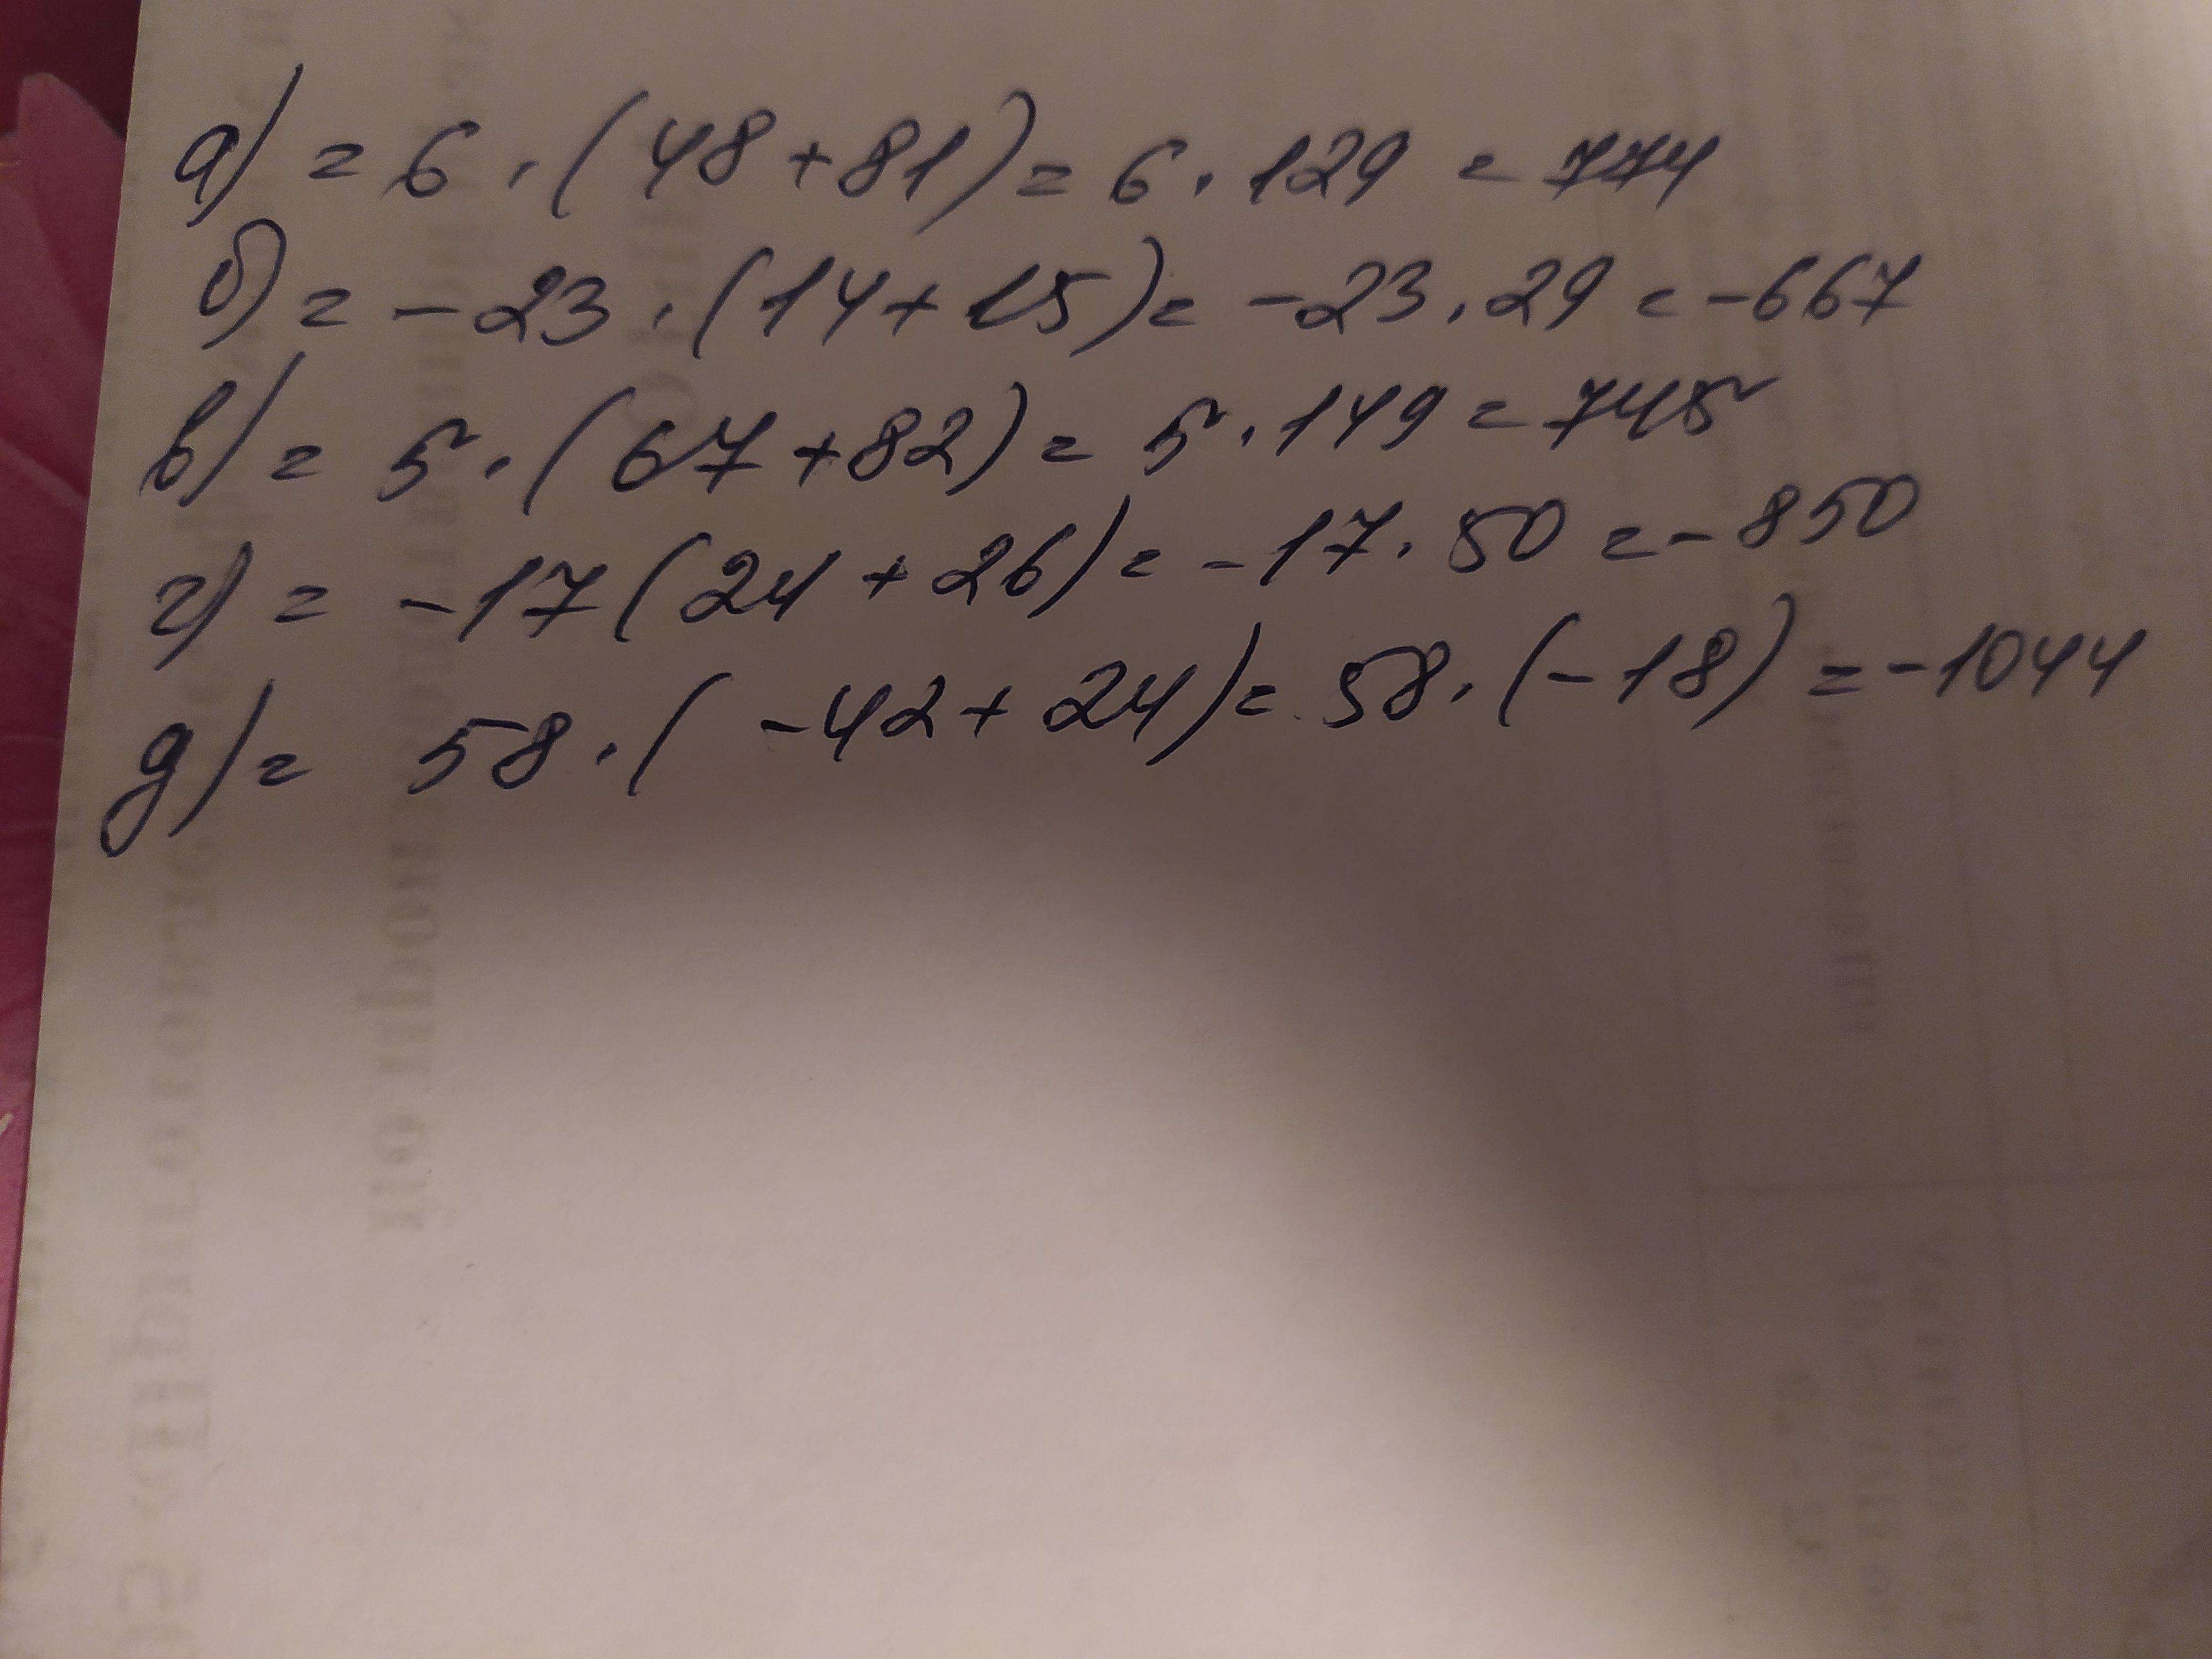 а) = 6 · (48 + 81) = 6 · 129 = 774
б) = - 23 · (14 + 15) = - 23 · 29 = - 667
в) = 5 · (67 + 82) = 5 · 149 = 745
г) = - 17 (24 + 26) = - 17 · 50 = - 850
д) = 58 · ( - 42 + 24) = 58 · (- 18) = - 1044